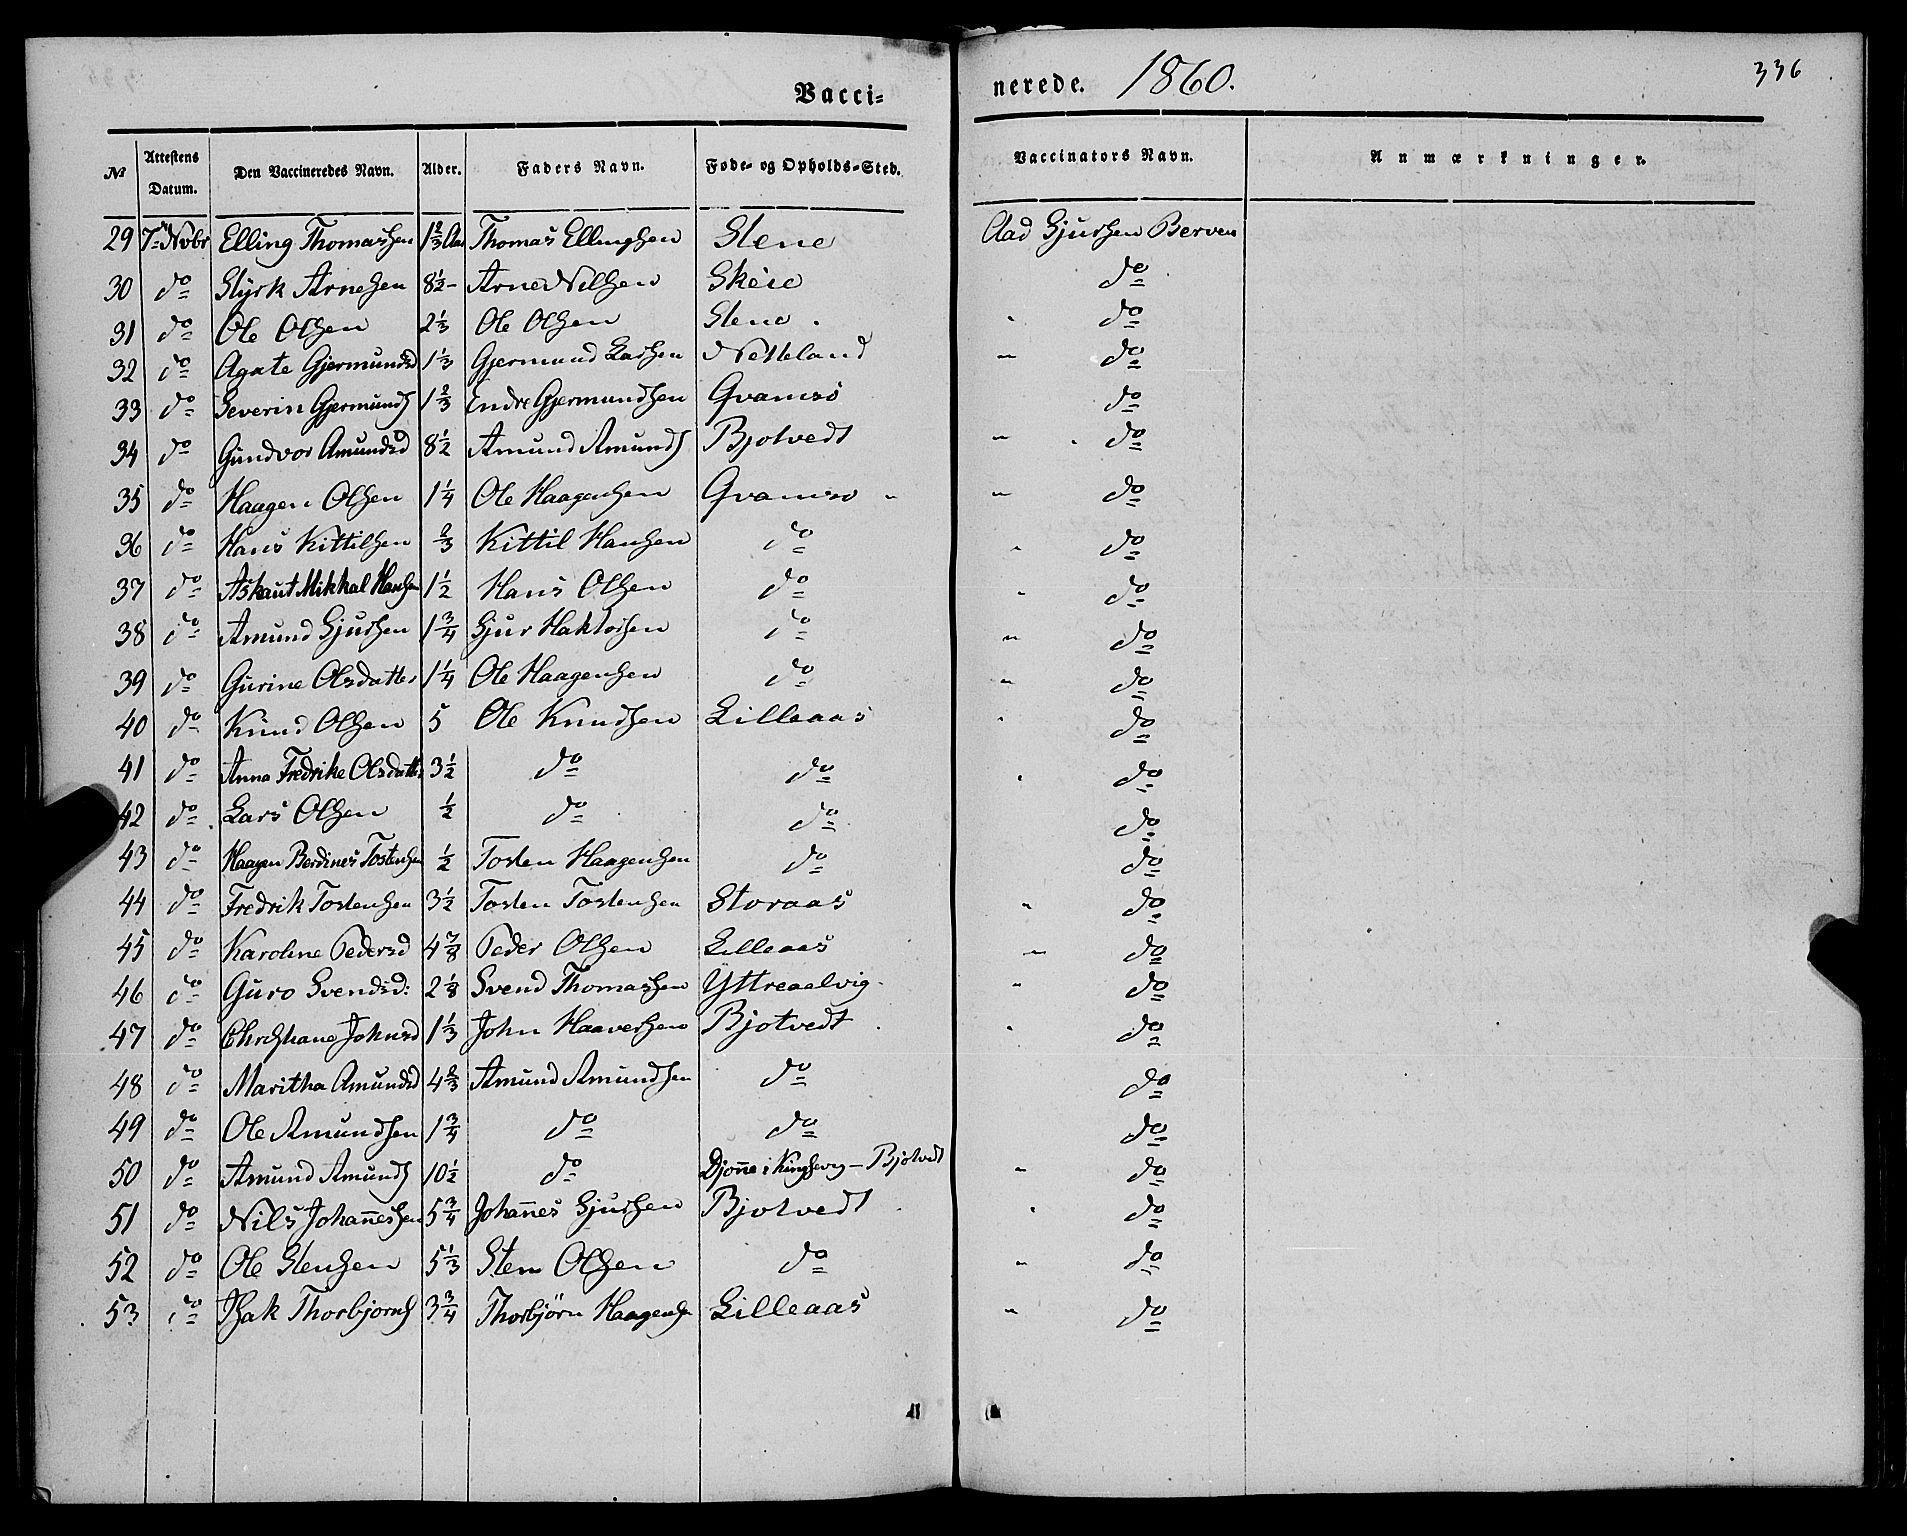 Vacci-
nerede. 1860.
336
№ Attestens Datum. Den Vaccineredes Navn. Alder. Faders Navn. Føde- og Opholds-Sted. Vaccinators Navn. Anmærkninger.
29 7de Novbr Elling Thomassen 1 2/3 Aar Thomas Ellingsen Stene Aad Sjursen Berven
30 do Styrk Arnesen 8 1/2 - Arne Nilsen Skeie do
31 do Ole Olsen 2 1/3 Ole Olsen Stene do
32 do Agate Gjermundsd 1 1/3 Gjermund Larsen Netteland " do
33 do Severin Gjermunds 1 2/3 Endre Gjermundsen Qvamsø do
34 do Gundvor Amundsd 8 1/2 Amund Amunds Bjotvedt " do
35 do Haagen Olsen 1 1/4 Ole Haagensen Qvamsø " do
36 do Hans Kittilsen 2/3 Kittil Hansen do " do
37 do Askaut Mikkal Hansen 1 1/2 Hans Olsen do " do
38 do Amund Sjursen 1 3/4 Sjur Haktorsen do " do
39 do Gurine Olsdatter 1 1/4 Ole Haagensen do " do
40 do Knud Olsen 5 Ole Knudsen Lilleaas " do
41 do Anna Fredrike Olsdatter 3 1/2 do do do
42 do Lars Olsen 1/2 do do do
43 do Haagen Berdines Tostensen 1/2 Tosten Haagensen do do
44 do Fredrik Tostensen 3 1/2 Tosten Tostensen Storaas " do
45 do Karoline Pedersd 4 7/8 Peder Olsen Lilleaas " do
46 do Guro Svendsd: 2 1/8 Svend Thomassen Yttreaalvig " do
47 do Christiane Johnsd 1 1/3 John Haaversen Bjotvedt do
48 do Maritha Amundsd 4 2/3 Amund Amundsen do do
49 do Ole Amundsen 1 3/4 do do do
50 do Amund Amunds 10 1/2 do Djønne i Kingservig - Bjotvedt " do
51 do Nils Johannessen 5 3/4 Johannes Sjursen Bjotvedt do
52 do Ole Stensen 5 1/3 Sten Olsen do " do
53 do Isak Thorbjorns 3 3/4 Thorbjörn Haagensen Lilleaas " do